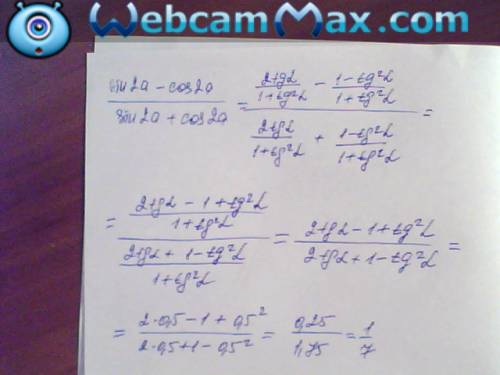 WebcamMax.com
(sin 2α − cos 2α)/(sin 2α + cos 2α) = (2tgα/(1+tg²α) − (1−tg²α)/(1+tg²α))/(2tgα/(1+tg²α) + (1−tg²α)/(1+tg²α)) =
= ((2tgα − 1 + tg²α)/(1+tg²α))/((2tgα + 1 − tg²α)/(1+tg²α)) = (2tgα − 1 + tg²α)/(2tgα + 1 − tg²α) =
= (2·0,5 − 1 + 0,5²)/(2·0,5 + 1 − 0,5²) = 0,25/1,75 = 1/7